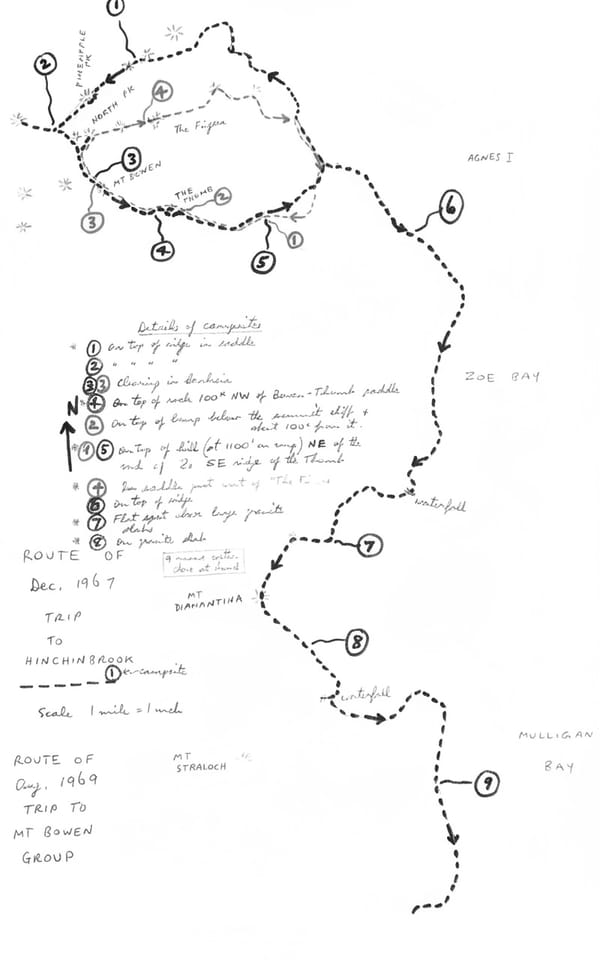 1
2
PINEAPPLE PK
NORTH PK
4
The Fingers
3
MT BOWEN
THE THUMB
2
3
4
1
5
AGNES I
6
ZOE BAY
Details of campsites
* 1 On top of ridge in saddle
2 " " " " "
3 3 Clearing in
N
4 On top of rock 100x NW of Bowen-Thumb saddle
2 On top of hump below the summit cliff +
about 100x from it.
* 1 5 On top of hill (at 1100' on map) NE of the
end of SE ridge of the Thumb
* 4 saddle just west of "The
6 On top of ridge
* 7 Flat spot above large granite
slabs
* 8 On granite slab
* means water
close at hand
waterfall
7
ROUTE OF
Dec, 1967
TRIP
TO
HINCHINBROOK
1 ← campsite
Scale 1 mile = 1 inch
MT
DIAMANTINA
8
waterfall
MULLIGAN
BAY
MT
STRALOCH
9
ROUTE OF
Aug, 1969
TRIP TO
MT BOWEN
GROUP